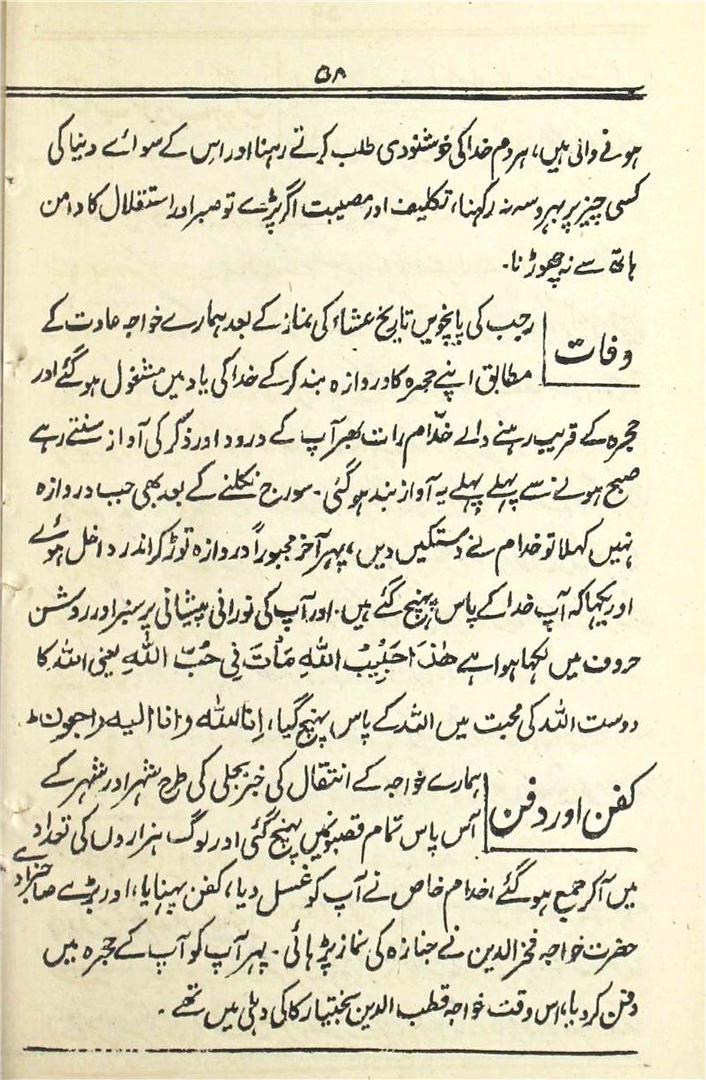 ۵۸
ہونے والی ہیں، ہر دم خدا کی خوشنودی طلب کرتے رہنا اور اس کے سوائے دنیا کی
کسی چیز پر بہروسہ نہ رکہنا، تکلیف اور مصیبت اگر پڑے تو صبر اور استقلال کا دامن
ہاتھ سے نہ چھوڑنا۔
وفات
رجب کی پانچویں تاریخ عشاء کی نماز کے بعد ہمارے خواجہ عادت کے
مطابق اپنے حجرہ کا دروازہ بند کر کے خدا کی یاد میں مشغول ہو گئے اور
حجرہ کے قریب رہنے والے خدّام رات بھر آپ کے درود اور ذکر کی آواز سنتے رہے
صبح ہونے سے پہلے پہلے یہ آواز بند ہو گئی۔ سورج نکلنے کے بعد بھی جب دروازہ
نہیں کہلا تو خدام نے دستکیں دیں، پہر آخر مجبوراً دروازہ توڑ کر اندر داخل ہوئے
اور یکہا کہ آپ خدا کے پاس پہنچ گئے ہیں۔ اور آپ کی نورانی پیشانی پر سبز اور روشن
حروف میں لکہا ہوا ہے ھٰذَا حَبِیْبُ اللّٰہِ مَاتَ فِی حُبِّ اللّٰہِ یعنی اللہ کا
دوست اللہ کی محبت میں اللہ کے پاس پہنچ گیا، اِنّا للّٰہ و انا الیہ راجعون ط
کفن اور دفن
ہمارے خواجہ کے انتقال کی خبر بجلی کی طرح شہر اور شہر کے
آس پاس تمام قصبونمیں پہنچ گئی اور لوگ ہزاروں کی تعداد
میں آ کر جمع ہو گئے، خدام خاص نے آپ کو غسل دیا، کفن پہنایا، اور بڑے صاحبزادے
حضرت خواجہ فخر الدین نے جنازہ کی نماز پڑہائی۔ پہر آپ کو آپ کے حجرہ میں
دفن کر دیا، اس وقت خواجہ قطب الدین بختیار کاکی دہلی میں تھے۔